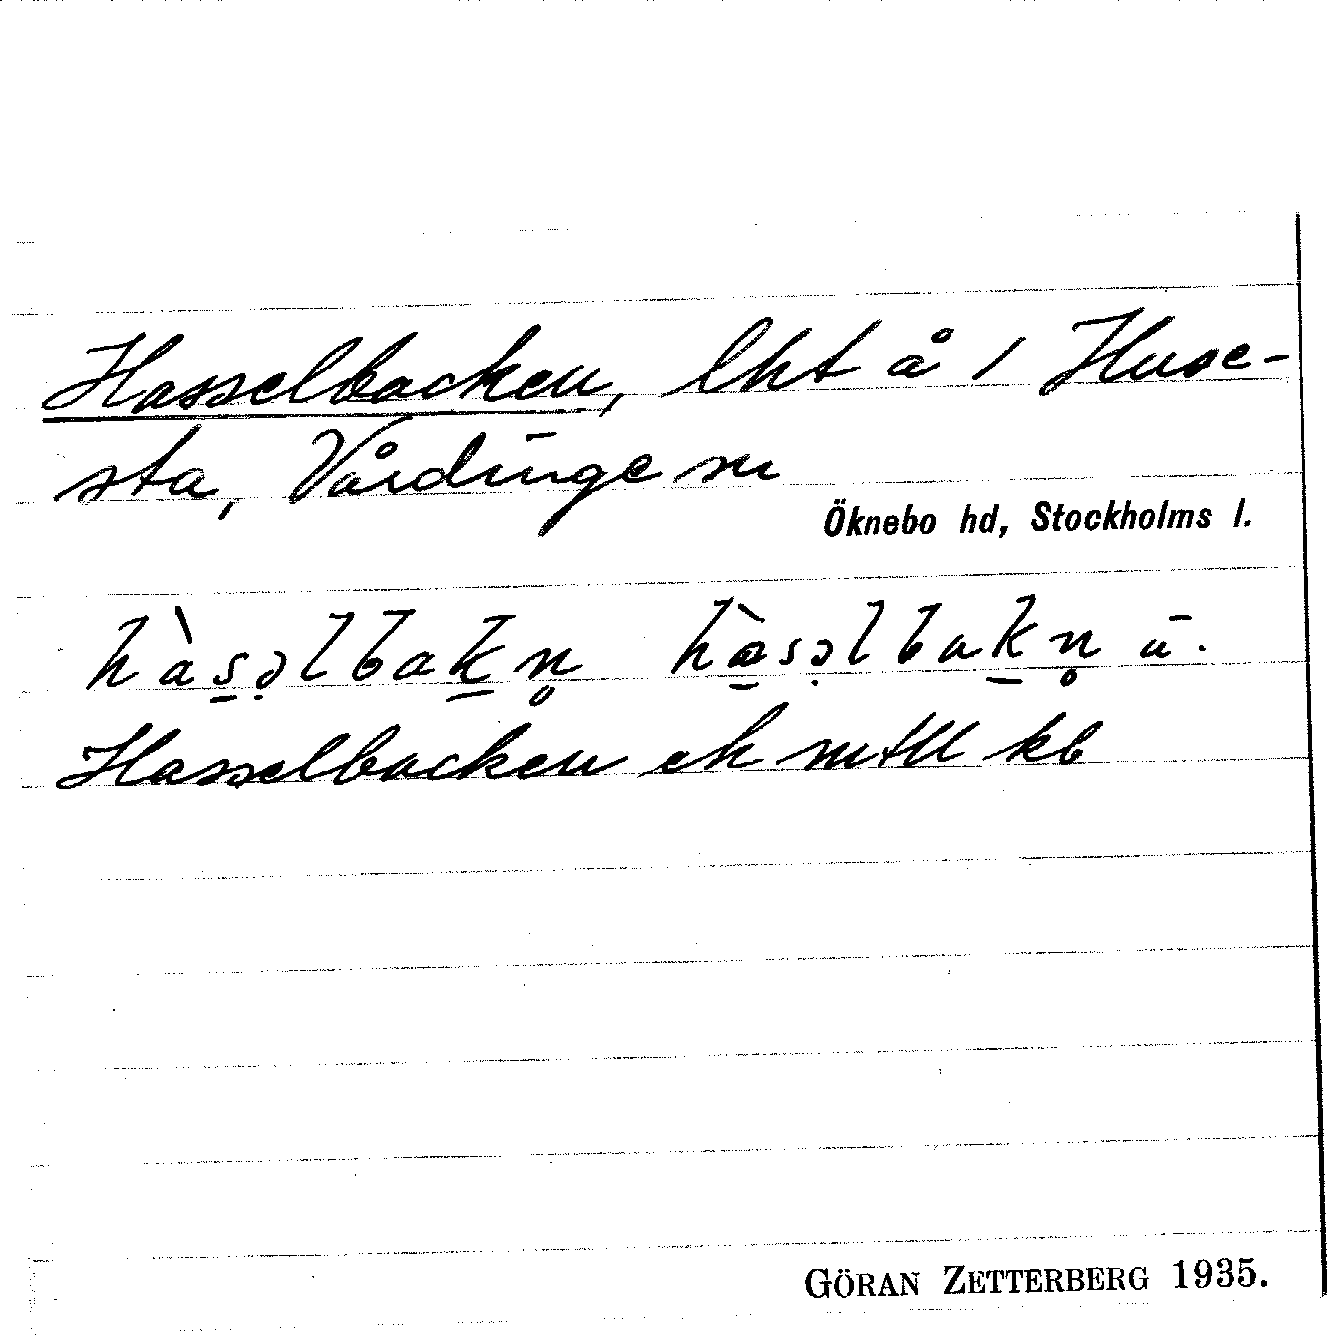 Hasselbacken, lht å 1 Huse-
sta, Vårdinge sn
Öknebo hd, Stockholms l.
hàs̲ə̣lbak̲n̥ hàs̲ə̣lbak̲n̥ ū.
Hasselbacken ek mtll kb
GÖRAN ZETTERBERG 1935.